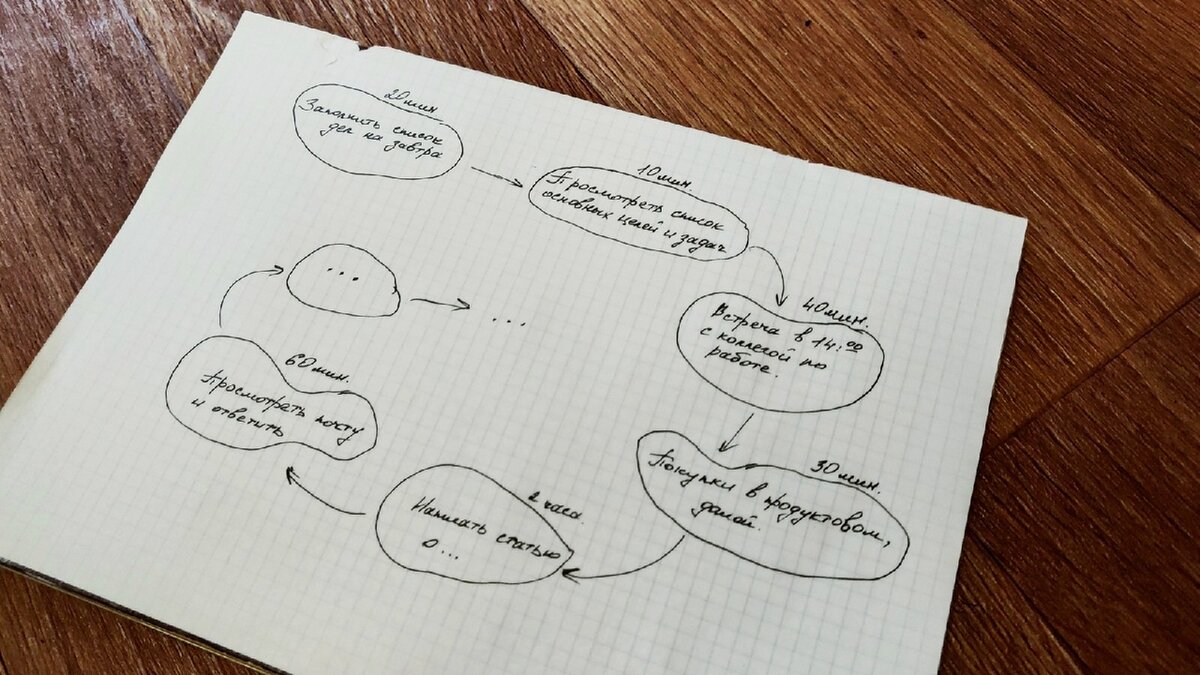 20 мин
Заполнить список
дел на завтра
10 мин.
Просмотреть список
основных целей и задач
40 мин.
Встреча в 14:00
с коллегой по
работе.
30 мин.
Покупки в продуктовом,
домой.
2 часа.
Написать статью
о...
60 мин.
Просмотреть почту
и ответить
...
...